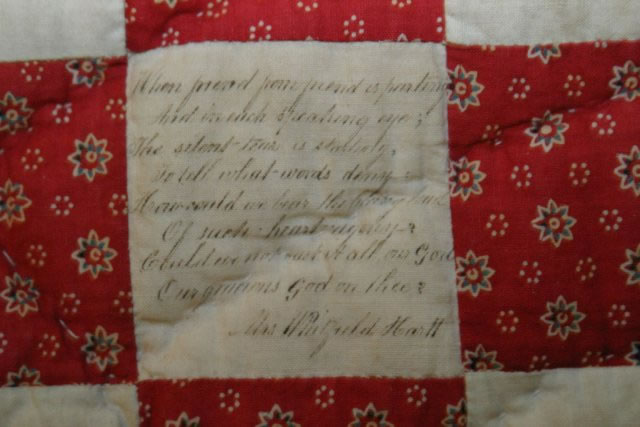 When proud pom friend is parting
And in each speaking eye;
The silent tear is starting,
To tell what words deny
How could we bear the
Of such heart
Could we not cast it all on God
Our gracious God on thee
Mrs Whitfield Hartt